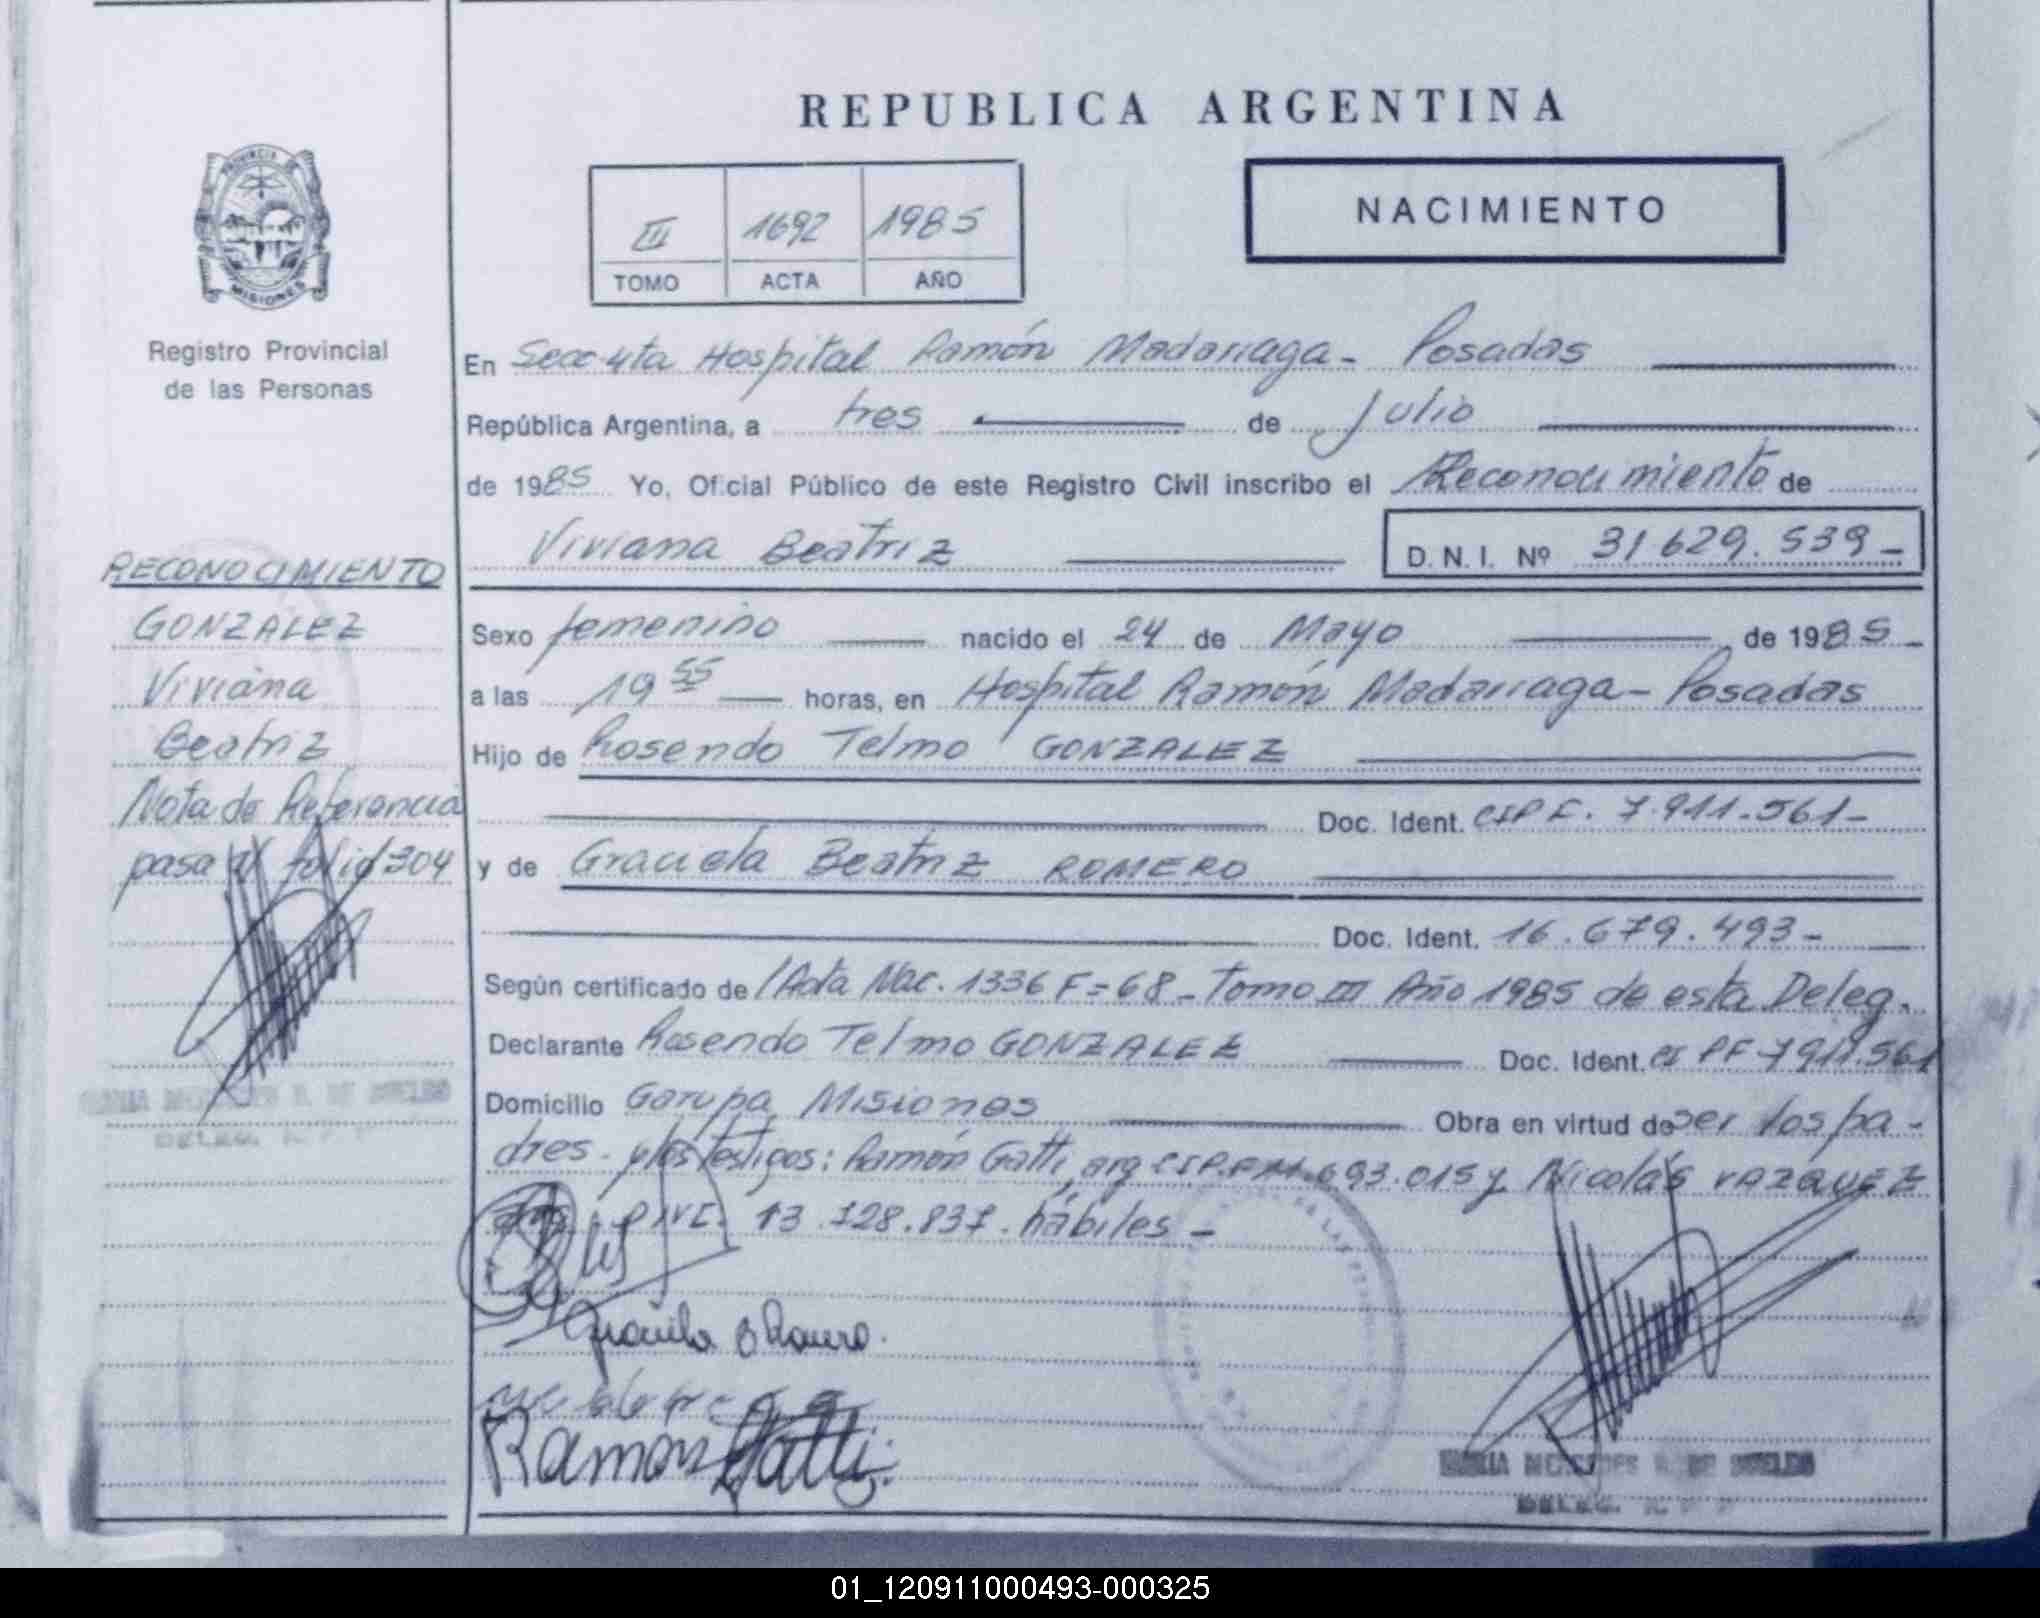 REPUBLICA ARGENTINA
NACIMIENTO
III 1692 1985
TOMO ACTA AÑO
PROVINCIA DE
MISIONES
Registro Provincial
de las Personas
En Secc 4ta Hospital Ramón Madariaga - Posadas
República Argentina, a tres de Julio
de 1985 Yo, Oficial Público de este Registro Civil inscribo el Reconocimiento de
Viviana Beatriz D. N. I. Nº 31629.539-
RECONOCIMIENTO
GONZALEZ
Viviana
Beatriz
Nota de Referencia
pasa al folio 304
Sexo femenino nacido el 24 de Mayo de 1985-
a las 19 55 horas, en Hospital Ramón Madariaga - Posadas
Hijo de Rosendo Telmo GONZALEZ
Doc. Ident. CIPF. 7.911.561-
y de Graciela Beatriz ROMERO
Doc. Ident. 16.679.493-
Según certificado de /Acta Nac. 1336 F=68 - Tomo III Año 1985 de esta Deleg.
Declarante Rosendo Telmo GONZALEZ Doc. Ident. CI PF 7911.561
Domicilio Garupa, Misiones Obra en virtud de ser los pa-
dres. y los testigos: Ramón Gatti, arg 693.015 y Nicolás VAZQUEZ
DNI. 13.728.837. hábiles -
Graciela B Romero.
Ramon Gatti
MARIA MERCEDES R. DE
DELEG.
MARIA MERCEDES R. DE
DELEG.
01_120911000493-000325